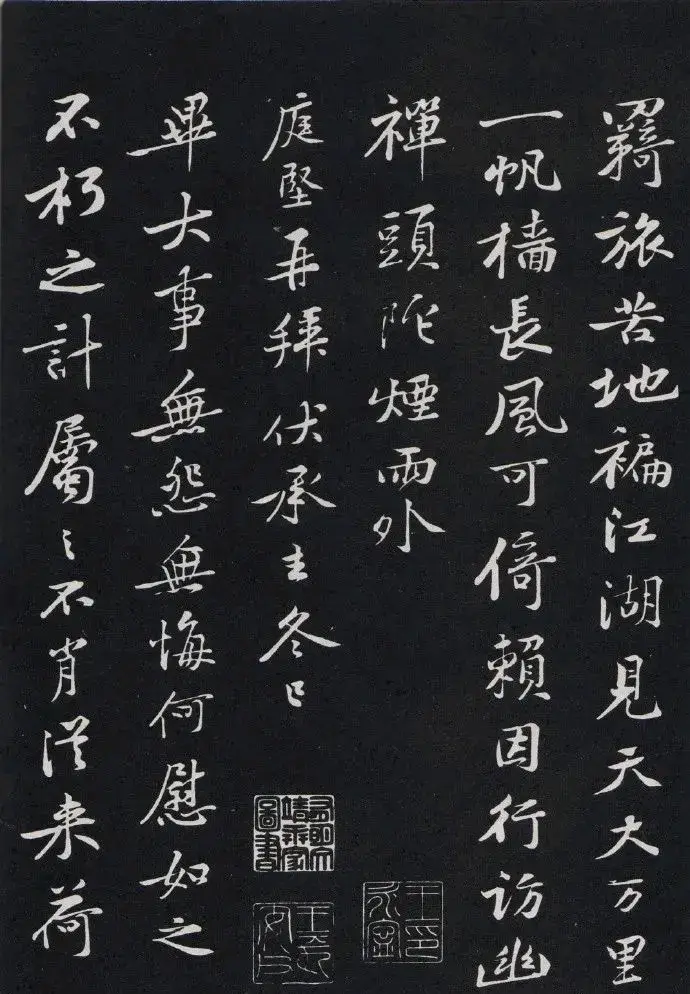 羇旅苦地褊江湖見天大万里
一帆檣長風可倚賴因行訪幽
禪頭陀煙雨外
庭堅再拜伏承去冬已
畢大事無怨無悔何慰如之
不朽之計屬之不肖從来荷